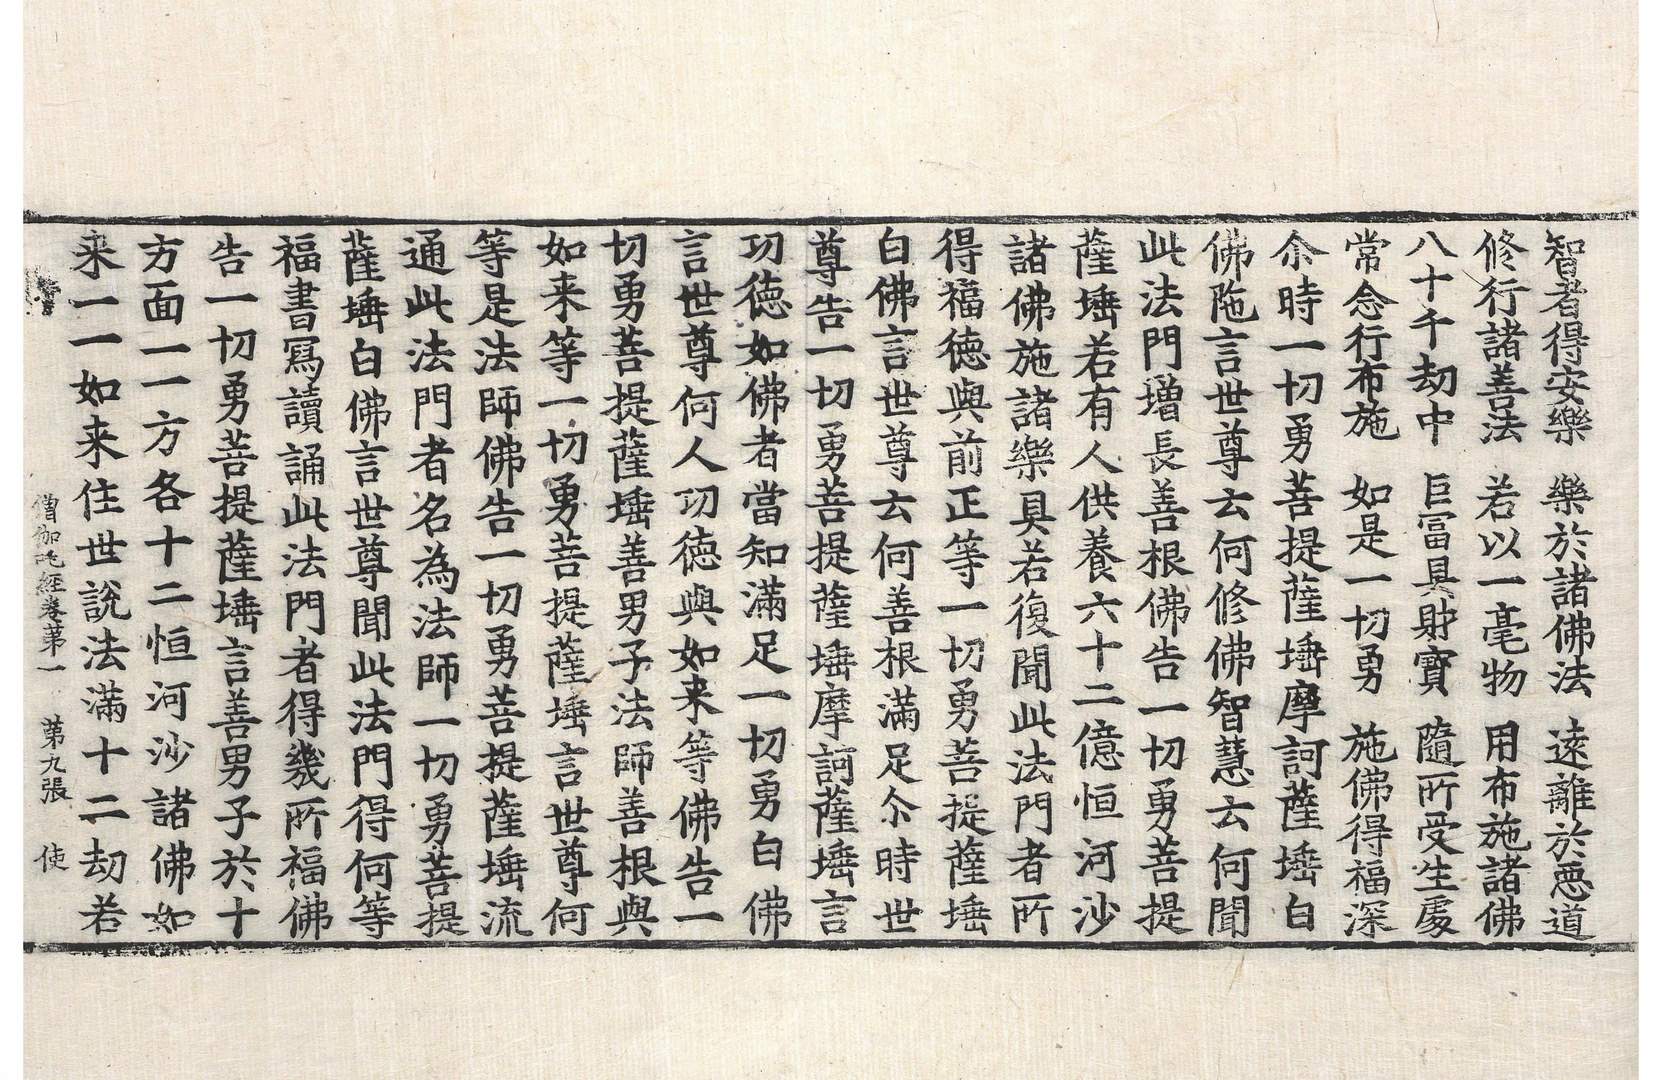 智者得安樂　樂於諸佛法　遠離於惡道
修行諸善法　若以一毫物　用布施諸佛
八十千劫中　巨冨具財寶　隨所受生處
常念行布施　如是一切勇　施佛得福深
尒時一切勇菩提薩埵摩訶薩埵白
佛陁言世尊云何修佛智慧云何聞
此法門增長善根佛告一切勇菩提
薩埵若有人供養六十二億恒河沙
諸佛施諸樂具若復聞此法門者所
得福德與前正等一切勇菩提薩埵
白佛言世尊云何善根滿足尒時世
尊告一切勇菩提薩埵摩訶薩埵言
功德如佛者當知滿足一切勇白佛
言世尊何人功德與如来等佛告一
切勇菩提薩埵善男子法師善根與
如来等一切勇菩提薩埵言世尊何
等是法師佛告一切勇菩提薩埵流
通此法門者名為法師一切勇菩提
薩埵白佛言世尊聞此法門得何等
福書冩讀誦此法門者得幾所福佛
告一切勇菩提薩埵言善男子於十
方面一一方各十二恒河沙諸佛如
来一一如来住世說法滿十二劫若
僧伽吒經卷第一　第九張　使